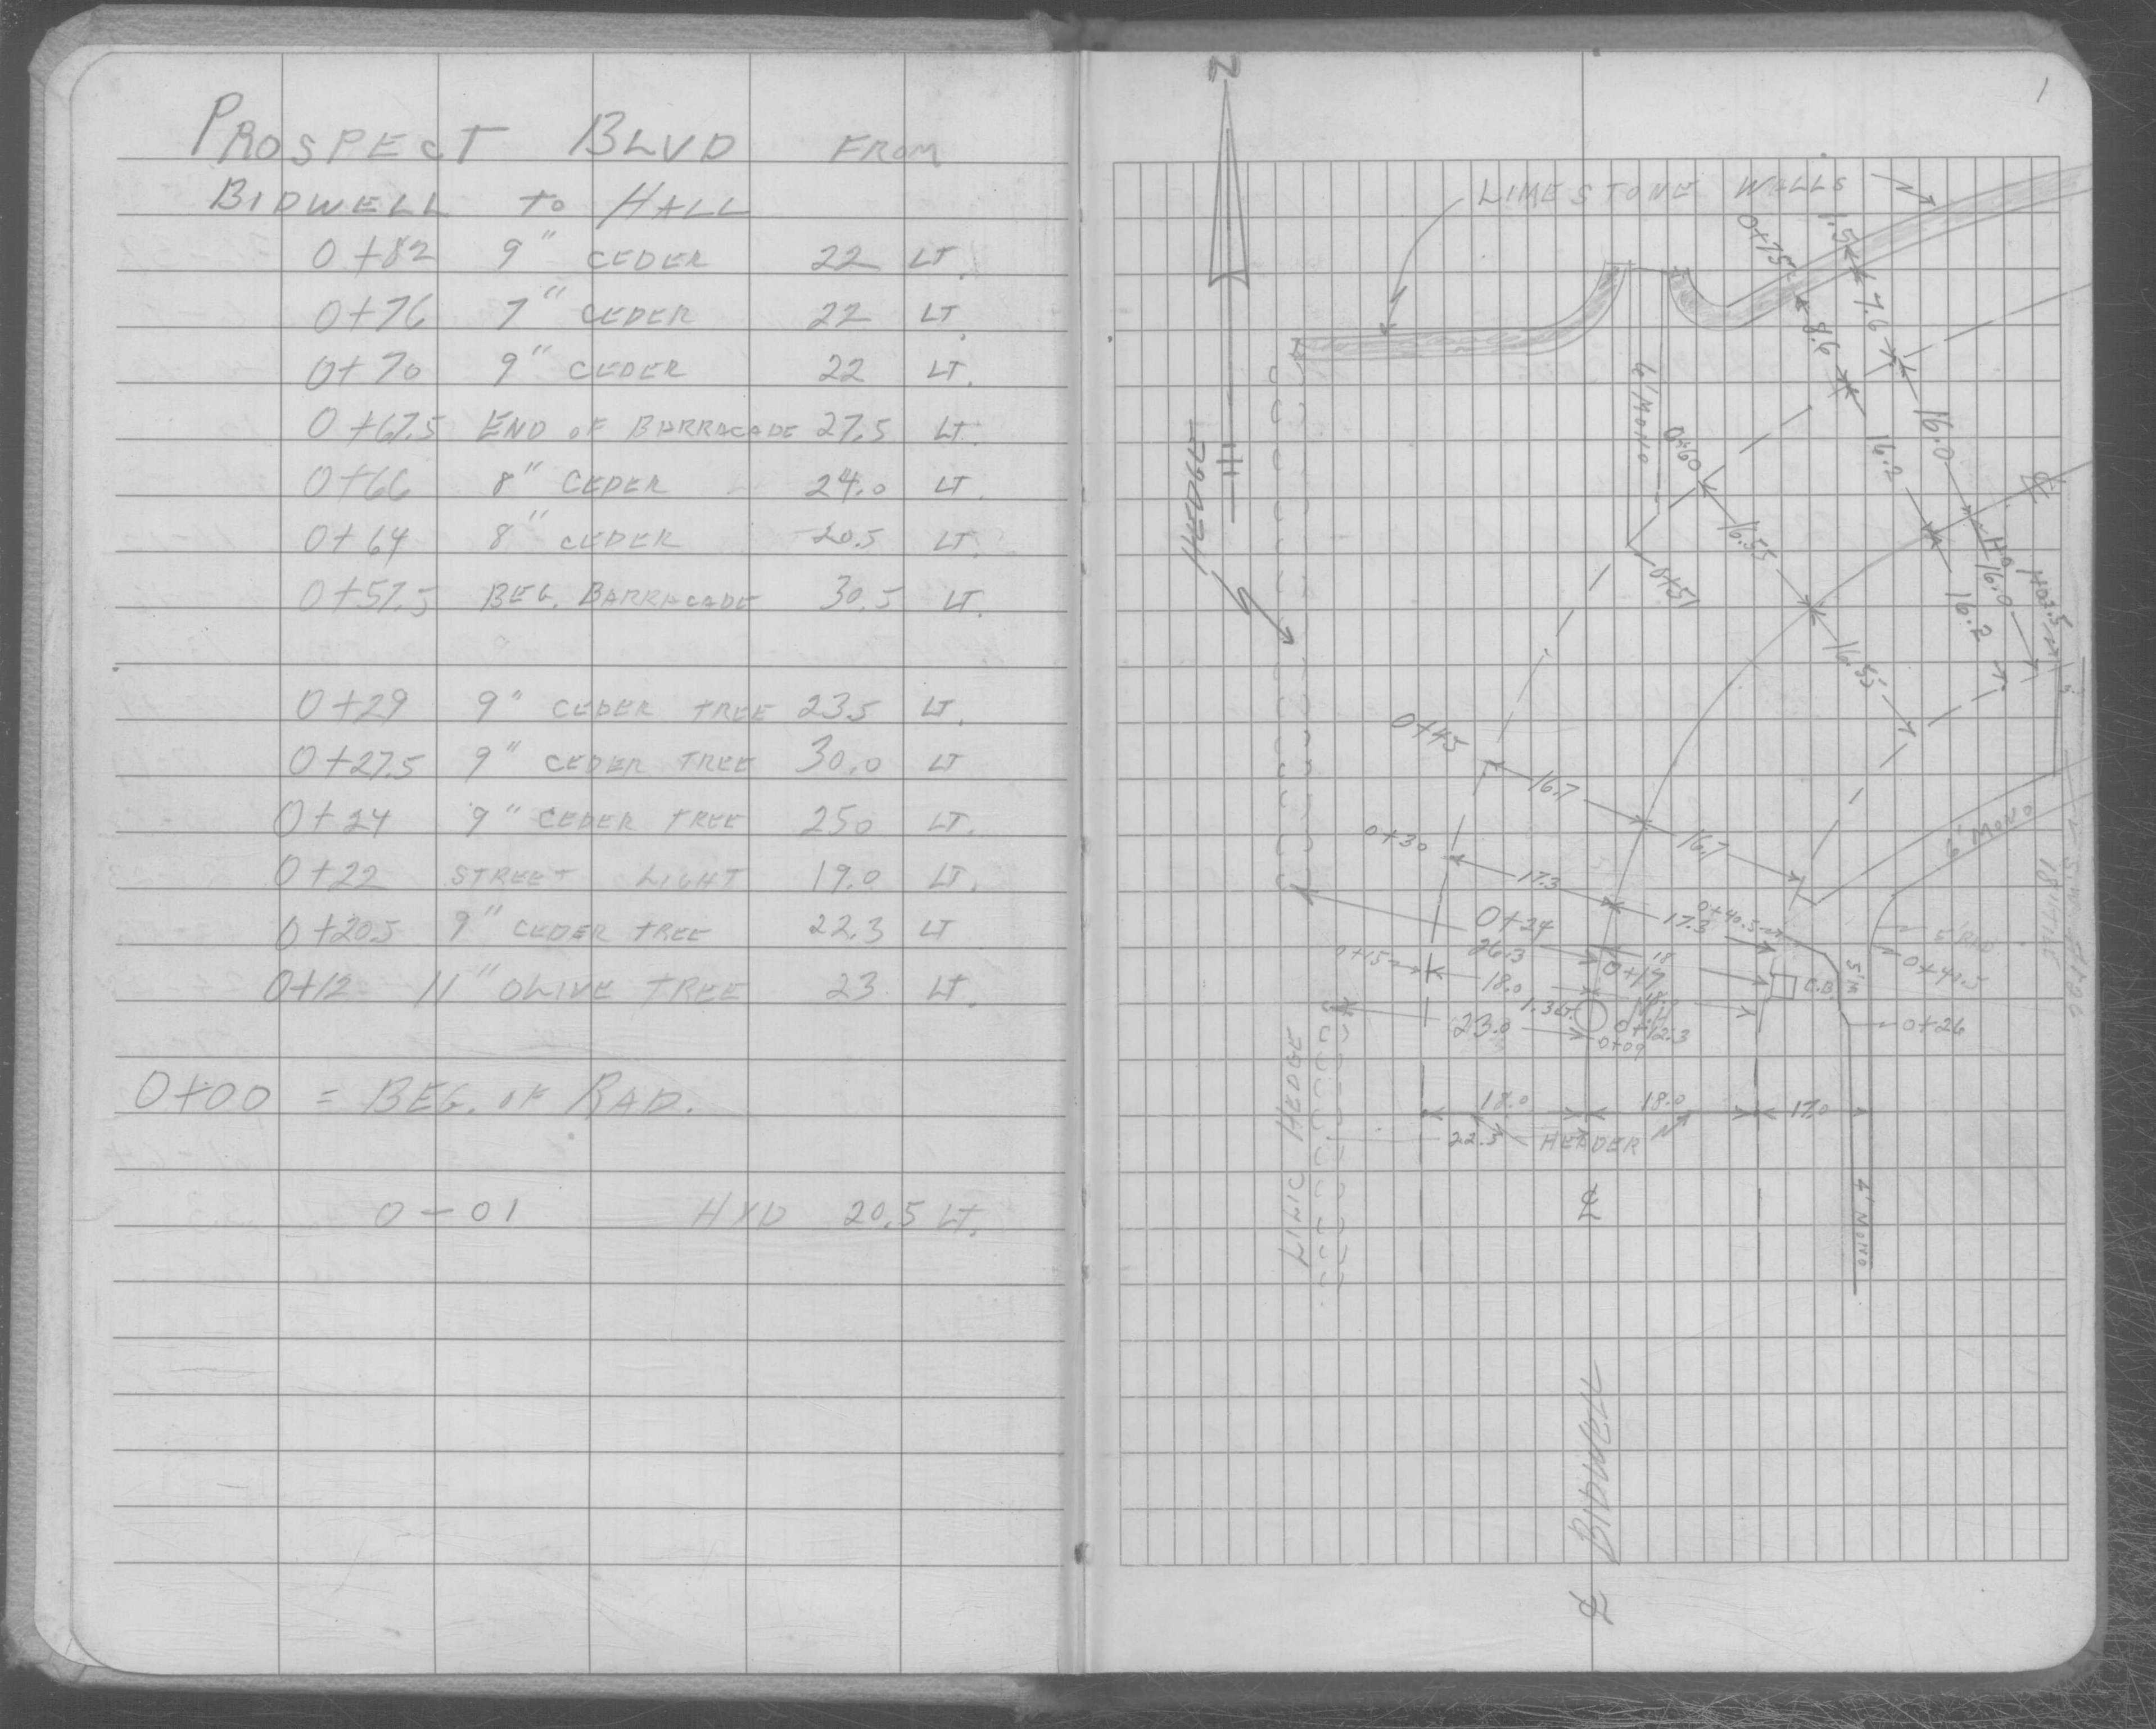 PROSPECT BLVD FROM
BIDWELL TO HALL
0+82 9" CEDER 22 LT.
0+76 7" CEDER 22 LT.
0+70 9" CEDER 22 LT.
0+67.5 END OF BARRACADE 27.5 LT.
0+66 8" CEDER 24.0 LT.
0+64 8" CEDER 20.5 LT.
0+57.5 BEG. BARRACADE 30.5 LT.
0+29 9" CEDER TREE 23.5 LT.
0+27.5 9" CEDER TREE 30.0 LT
0+24 9" CEDER TREE 250 LT.
0+22 STREET LIGHT 19.0 LT.
0+20.5 9" CEDER TREE 22.3 LT
0+12 11" OLIVE TREE 23 LT.
0+00 = BEG. OF RAD.
0-01 HYD 20.5 LT.
1
N
LIMESTONE WALLS
0+75
1.5
7.6
8.6
6' MONO
0+60
16.0
16.2
HEDGE
16.55
0+51
1+0
16.0
1+03.5
16.2
16.55
0+45
16.7
16.7
6' MONO
0+30
17.3
17.3
0+40.5
0+24
26.3
18
5' RAD
0+15
18.0
0+19
C.B.
5' M
0+41.5
1.3 LT.
23.0
0+12.3
0+09
0+26
18.0
18.0
17.0
22.5
HEADER
LILIC HEDGE
4' MONO
℄
BIDWELL
℄